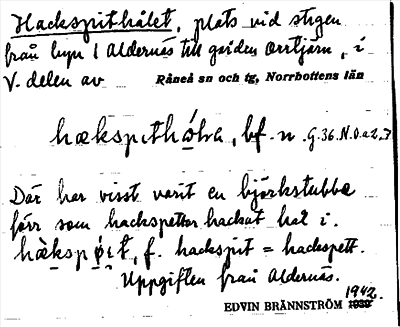 Hackspithålet, plats vid stigen
från byn i Aldernäs till gården Orrtjärn, i
V. delen av Råneå sn och tg, Norrbottens län
hækspɩthǫ́lrа, bf. n. G.36.N.0.a2.3
Där har visst varit en björkstubbe
förr som hackspettar hackat hål i.
hækspǿɩt, f. hackspit = hackspett.
Uppgiften från Aldernäs.
1942.
EDVIN BRÄNNSTRÖM 1939